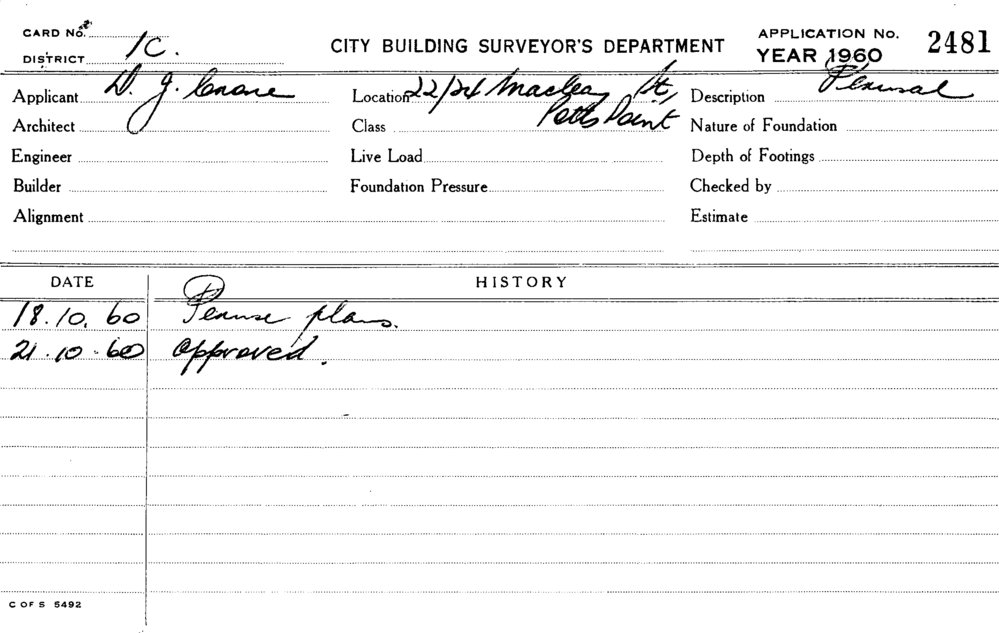 CARD No. APPLICATION No. 2481
DISTRICT 1C. CITY BUILDING SURVEYOR'S DEPARTMENT YEAR 1960
Applicant D. J. Crane Location 22/24 Macleay St, Description Perusal
Architect Class Potts Point Nature of Foundation
Engineer Live Load Depth of Footings
Builder Foundation Pressure Checked by
Alignment Estimate
DATE HISTORY
18.10.60 Peruse plans.
21.10.60 Approved.
C OF S 5492